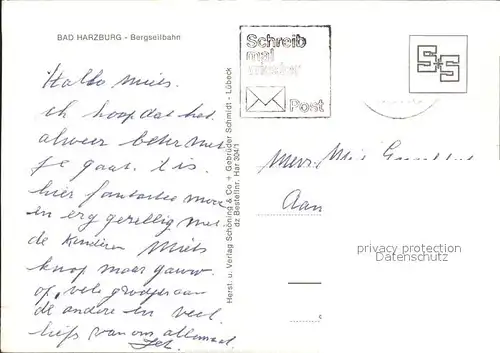 BAD HARZBURG - Bergseilbahn
Schreib
mal
wieder
Post
S+S
Hallo Miets.
ik hoop dat het
alweer beter met
je gaat. t is
hier fantasties mooi
en erg gezellig met
de kinderen Miets
knap maar gauw
op, vele groetjes aan
de andere en veel
liefs van ons allemaal
Herst. u. Verlag Schöning & Co + Gebrüder Schmidt - Lübeck
dz Bestellnr. Har 304/1
Mevr. Miets
Aan
privacy protection
Datenschutz